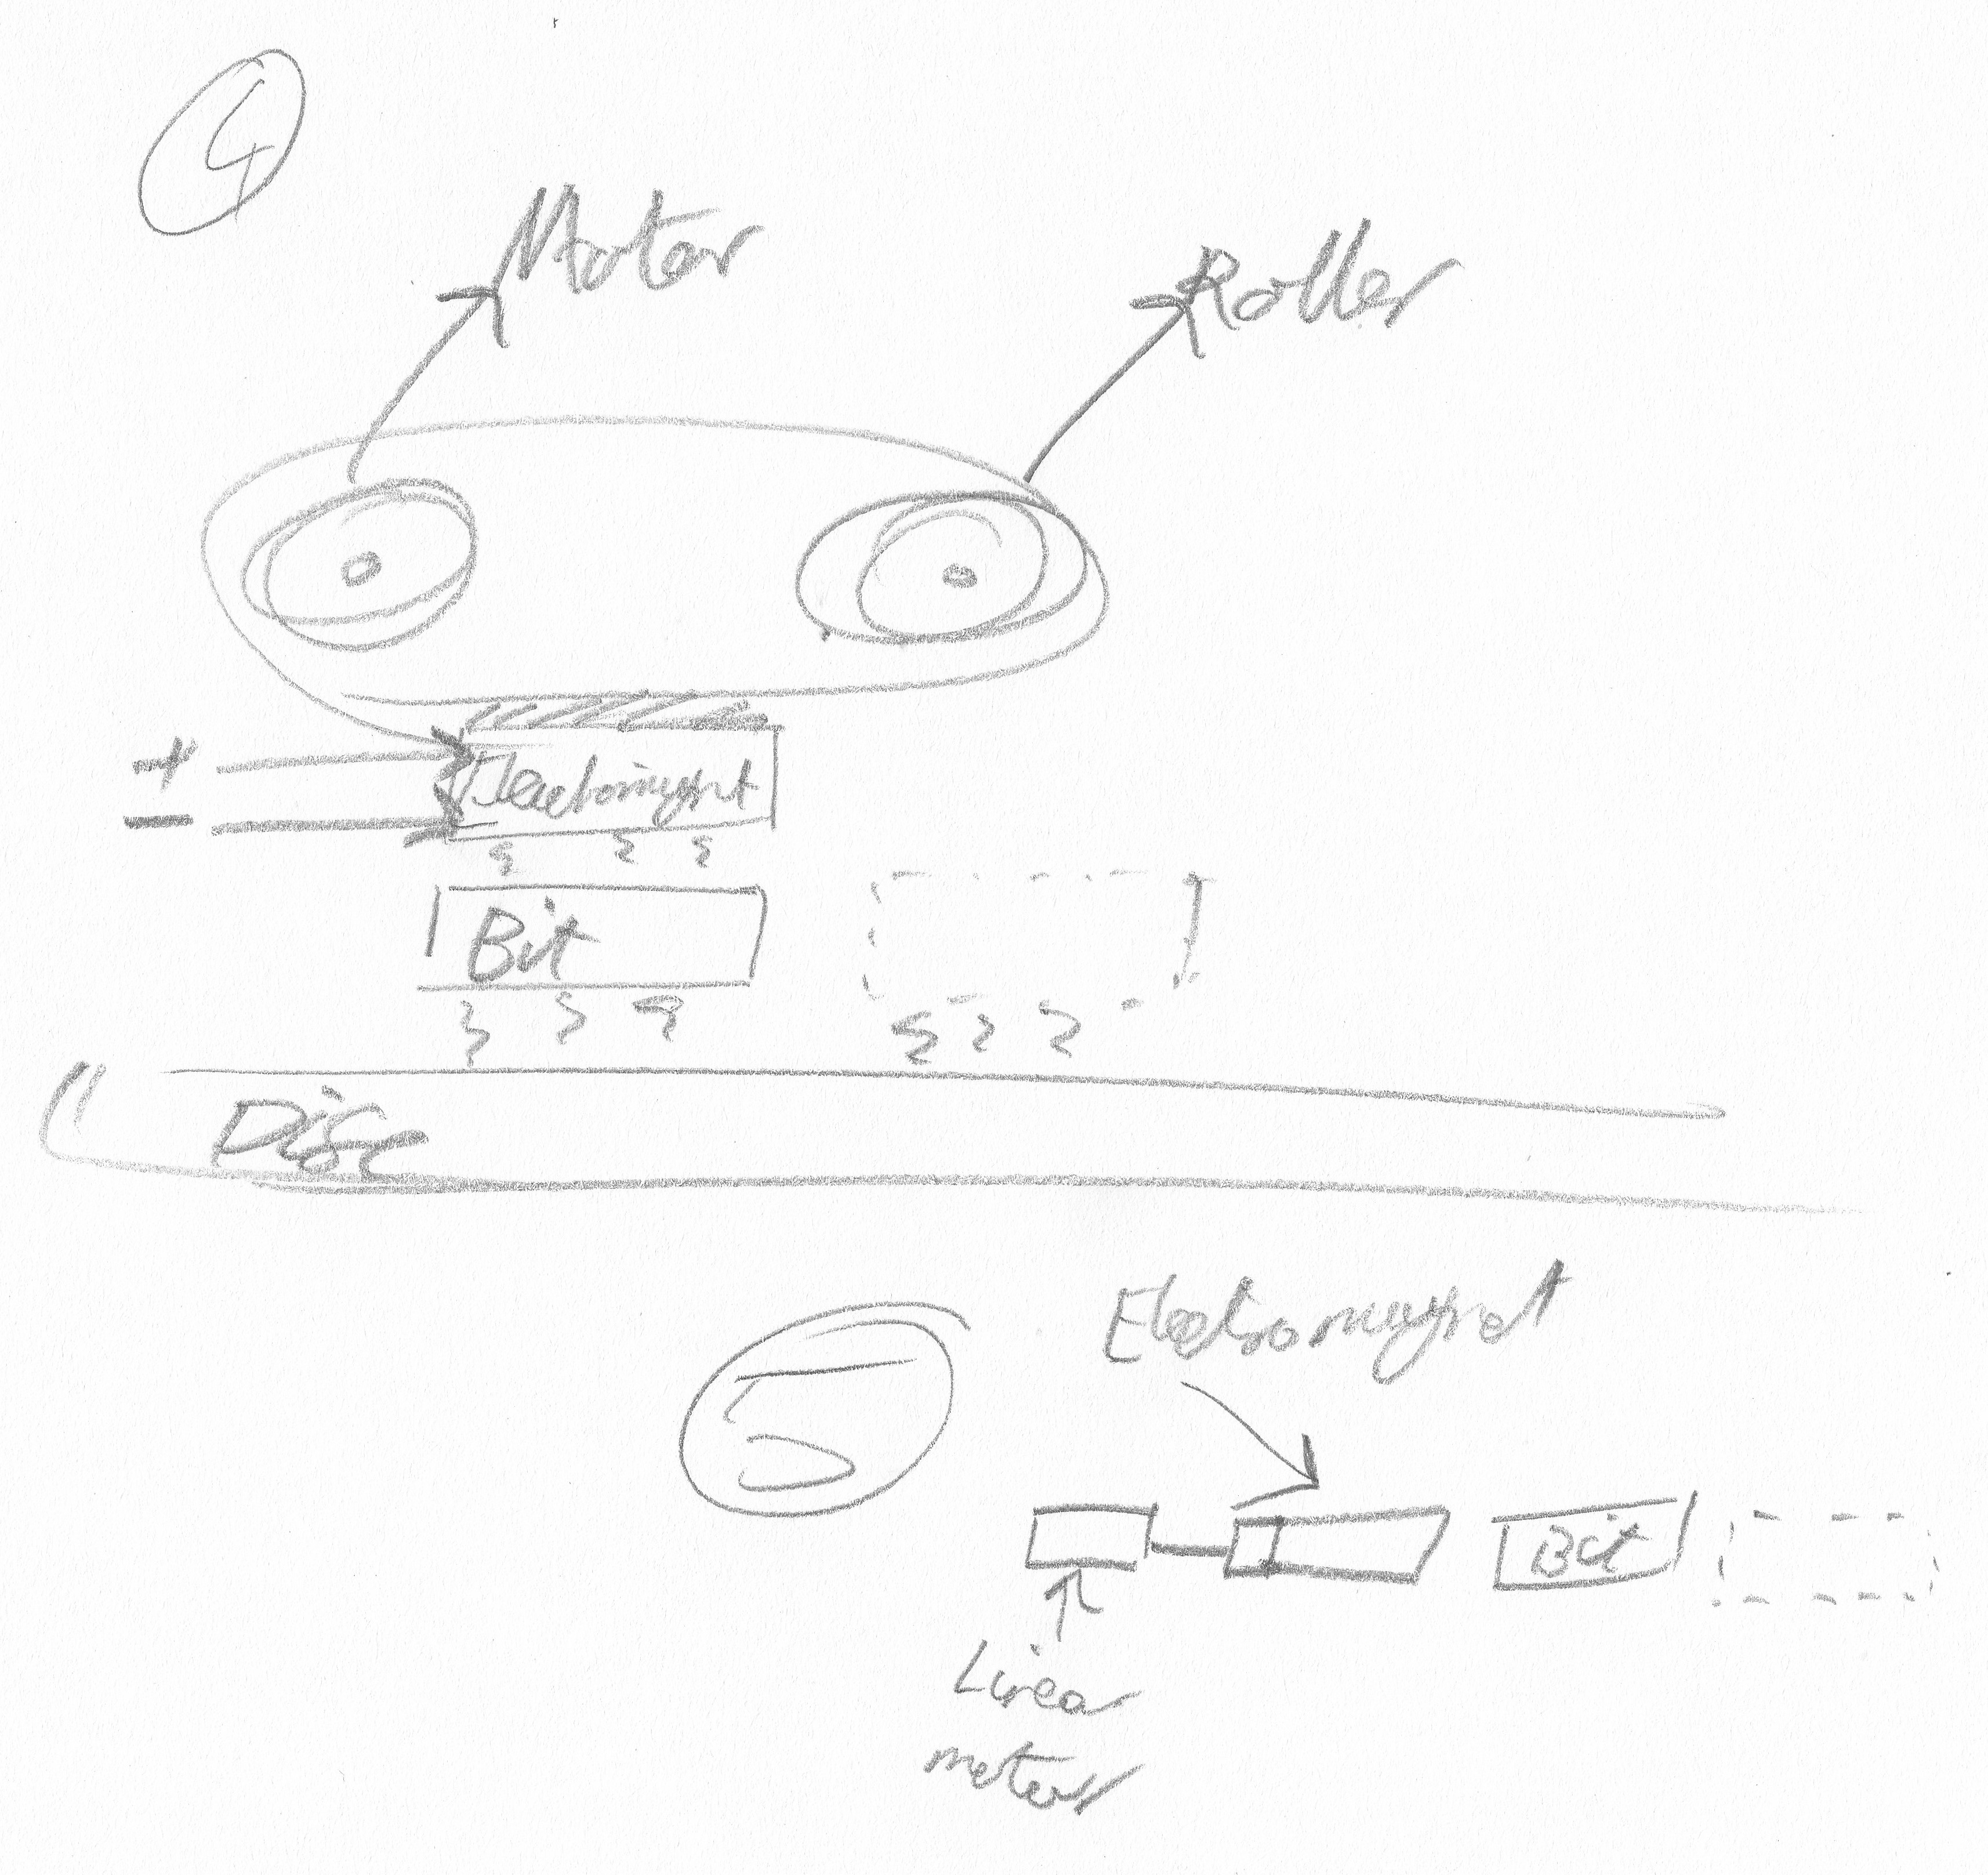 4
Motor
Roller
+
Electromagnet
−
Bit
Disc
5
Electromagnet
Bit
Linear
motors